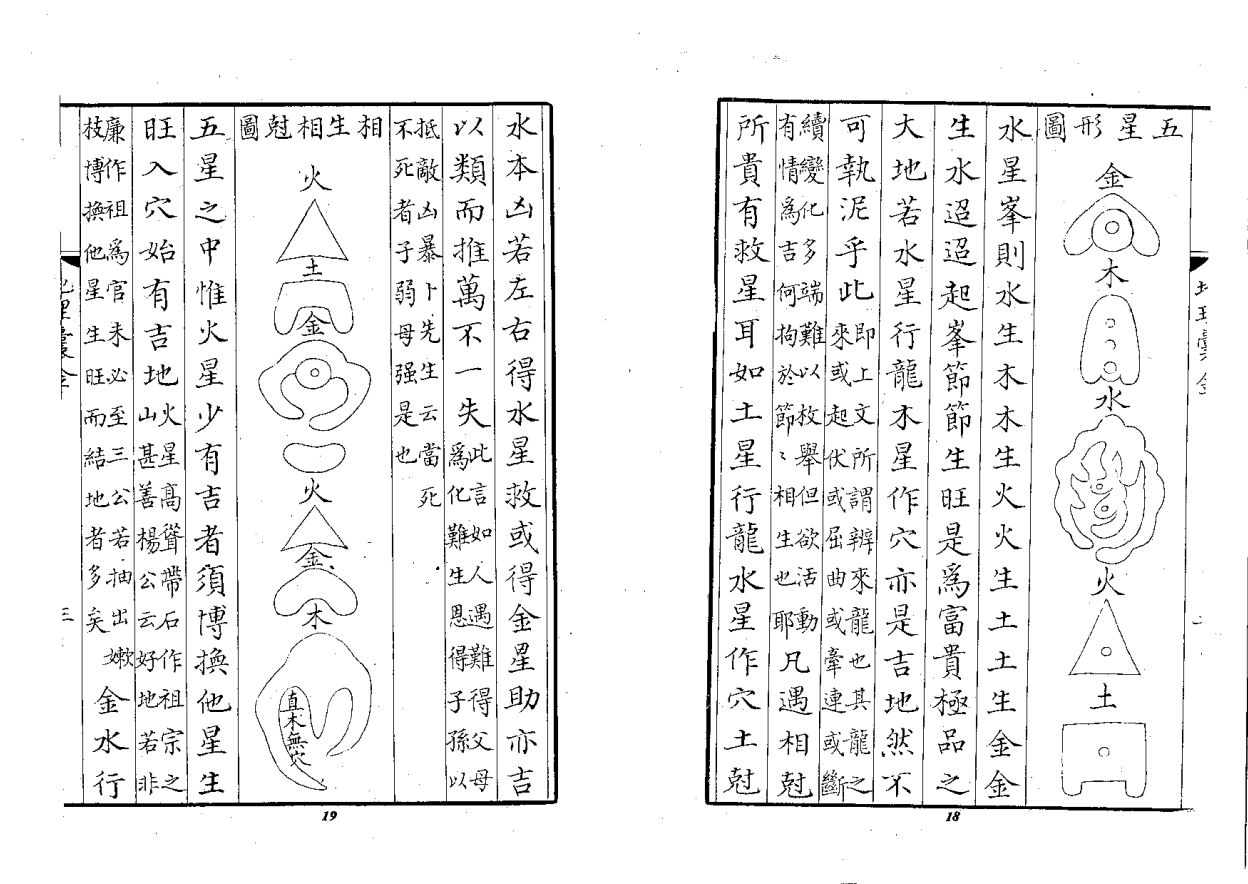 五星形圖
金
木
水
火
土
水星峯則水生木木生火火生土土生金金
生水迢迢起峯節節生旺是爲富貴極品之
大地若水星行龍木星作穴亦是吉地然不
可執泥乎此即上文所謂辨來龍也其龍之
來或起伏或屈曲或牽連或斷
續變化多端難以枚舉但欲活動
有情爲吉何拘於節〻相生也耶凡遇相尅
所貴有救星耳如土星行龍水星作穴土尅
18
水本凶若左右得水星救或得金星助亦吉
以類而推萬不一失此言如人遇難得父母
爲化難生恩得子孫以
抵敵凶暴卜先生云當死
不死者子弱母强是也
相生相尅圖
火
土
金
火
金
木
直木無穴
五星之中惟火星少有吉者須博換他星生
旺入穴始有吉地火星高聳帶石作祖宗之
山甚善楊公云好地若非
廉作祖爲官未必至三公若抽出嫩
枝博換他星生旺而結地者多矣金水行
三
19